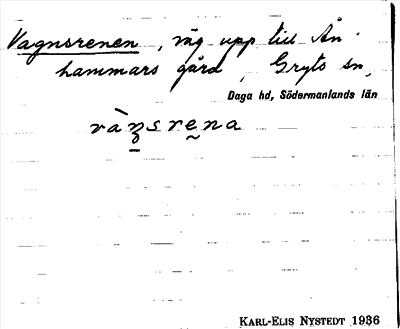 Vagnsrenen, väg upp till Ån-
hammars gård, Gryts sn,
Daga hd, Södermanlands län
KARL-ELIS NYSTEDT 1936